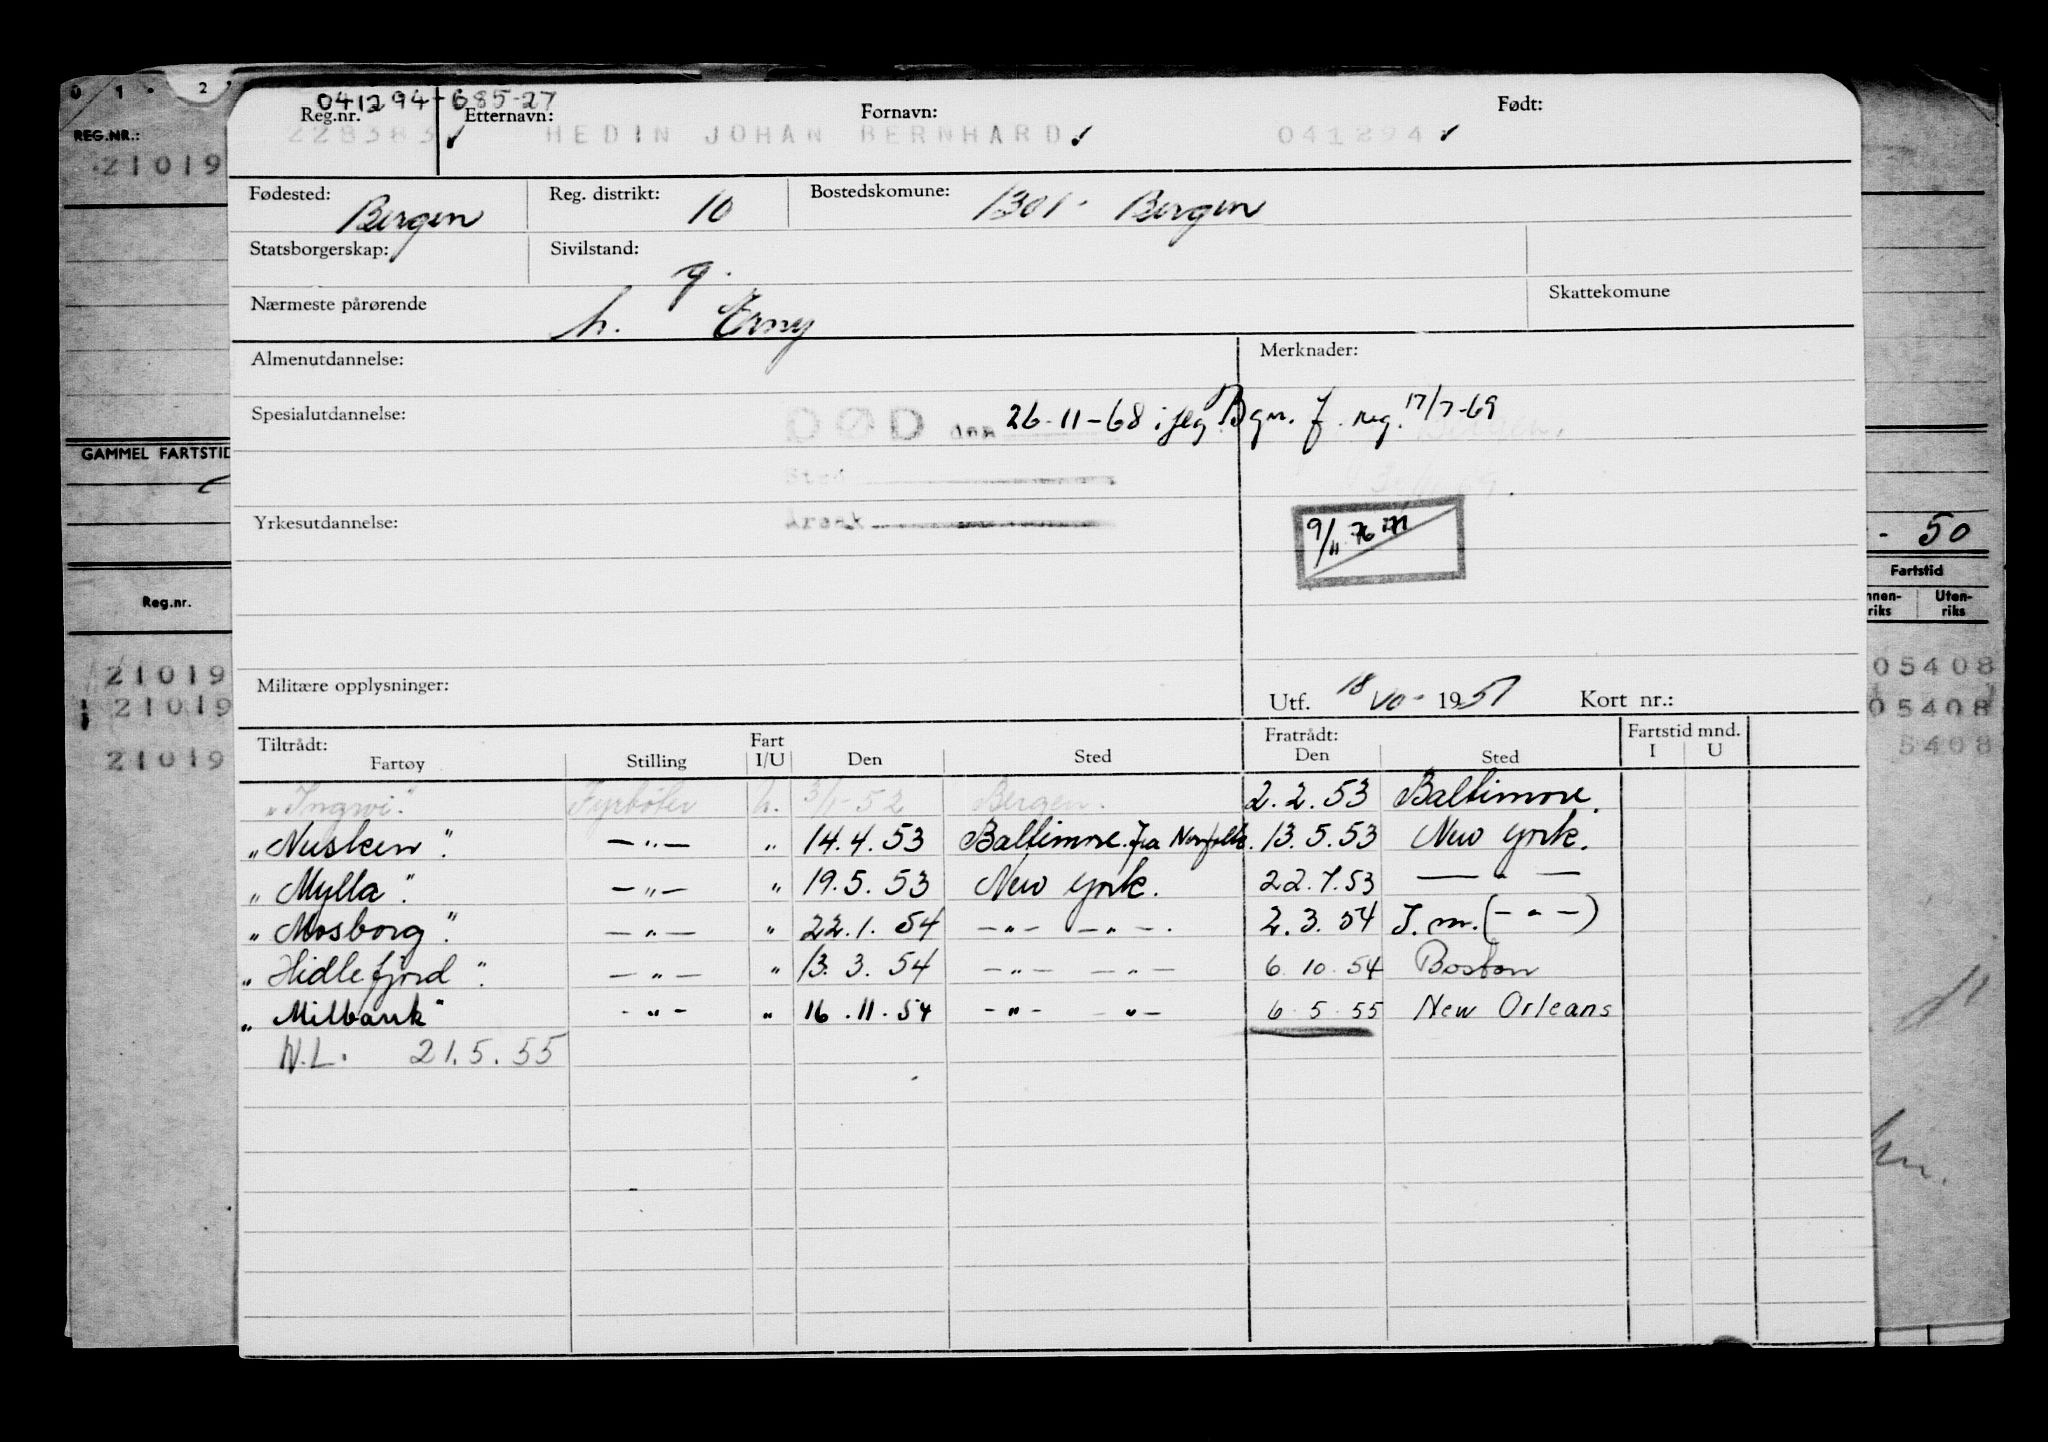 0 1 . 2
REG.NR.:
21019
GAMMEL FARTSTID
Reg.nr.
21019
21019
21019
041294-685-27
Reg.nr. Etternavn: Fornavn: Født:
228383 HEDIN JOHAN BERNHARD 041294
Fødested: Bergen Reg. distrikt: 10 Bostedskomune: 1301 - Bergen
Statsborgerskap: Sivilstand: g.
Nærmeste pårørende h. Erny Skattekomune
Almenutdannelse: Merknader:
Spesialutdannelse: DØD den 26-11-68 i flg. Bgn. f. reg. 17/7-69
Sted
Årsak
Yrkesutdannelse: 9/11-76
Militære opplysninger: Utf. 18/VII- 1951 Kort nr.:
Tiltrådt: Fart Fratrådt: Fartstid mnd.
Fartøy Stilling I/U Den Sted Den Sted I U
"Ingwi". Fyrbøter h. 3/1-52 Bergen. 2.2.53 Baltimore.
"Nusken". -"- " 14.4.53 Baltimore. fra Norfolk. 13.5.53 New York.
"Mylla". -"- " 19.5.53 New York. 22.7.53 — " —
"Mosborg". -"- " 22.1.54 -"- -"-. 2.3.54 I.m. (-"-)
"Hidlefjord". -"- " 13.3.54 -"- -"- 6.10.54 Boston
"Milbank" -"- " 16.11.54 -"- -"- 6.5.55 New Orleans
N.L. 21.5.55
- 50
Fartstid
nnen-riks Uten-riks
05408
05408
5408